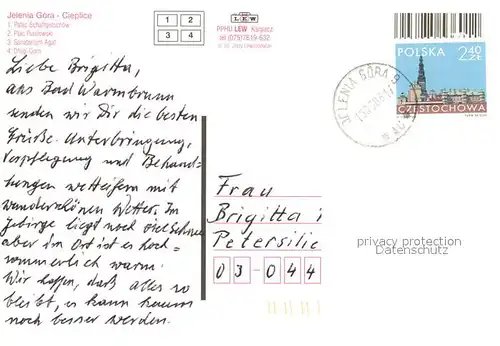 Jelenia Góra - Cieplice
1. Pałac Schaffgotschów
2. Plac Piastowski
3. Sanatorium Agat
4. Długi Dom
1 2
3 4
LEW
PPHU LEW Karpacz
tel (075)7619-632
POLSKA 2,40 ZŁ
CZĘSTOCHOWA
JELENIA GÓRA 9
Liebe Brigitta,
aus Bad Warmbrunn
senden wir Dir die besten
Grüße. Unterbringung,
Verpflegung und Behand-
lungen wetteifern mit
wunderschönen Wetter. Im
Gebirge liegt noch viel Schnee
aber im Ort ist es hoch-
sommerlich warm.
Wir hoffen, daß alles so
bleibt, es kann kaum
noch besser werden.
Frau
Brigitta
Petersilie
03-044
privacy protection
Datenschutz